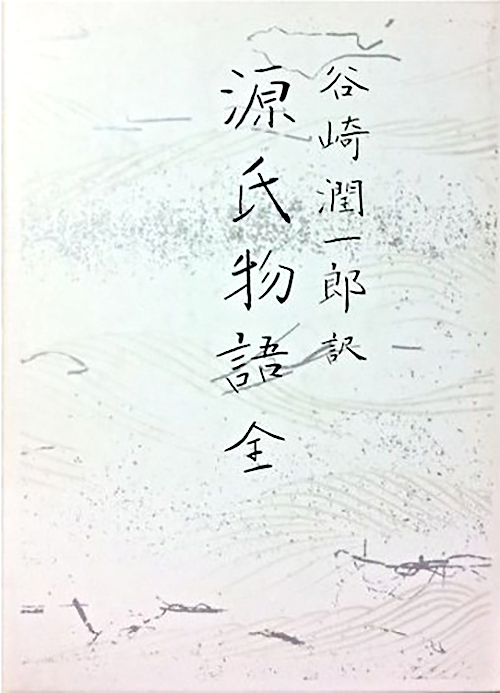 谷崎潤一郎訳
源氏物語全